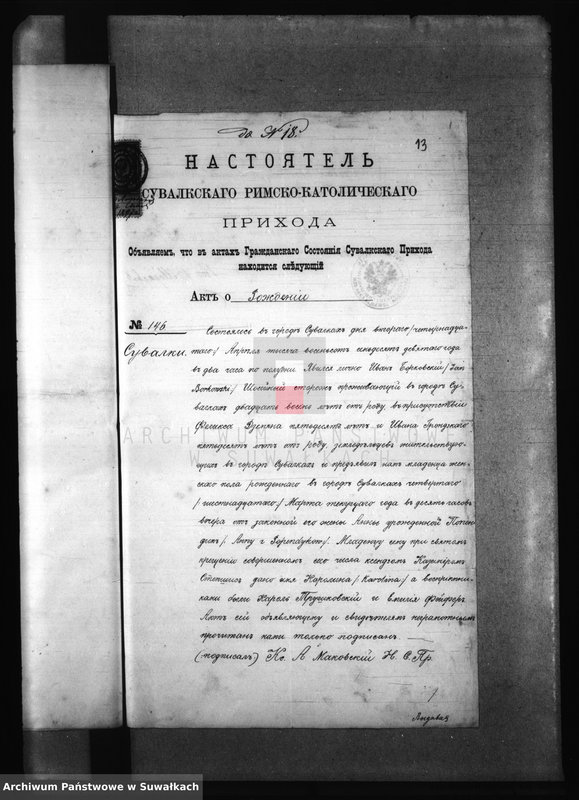 до № 18.
13
НАСТОЯТЕЛЬ
СУВАЛКСКАГО РИМСКО-КАТОЛИЧЕСКАГО
ПРИХОДА
Объявляемъ, что въ актахъ Гражданскаго Состоянія Сувалкскаго Прихода
находится слѣдующій
Актъ о Рожденіи
№ 146
Сувалки.
Состоялось въ городѣ Сувалкахъ дня втораго /четырнадца-
таго:/ Апрѣля тысяча восемьсотъ семьдесятъ девятаго года
въ два часа по полудни. Явился лично Иванъ Борковскій /Jan
Borkowski:/ сторожъ проживающій въ городѣ Су-
валкахъ двадцать восемь лѣтъ отъ роду, въ присутствіи
Феликса пятьдесятъ лѣтъ и Ивана
пятьдесятъ лѣтъ отъ роду, жительствую-
щихъ въ городѣ Сувалкахъ и предъявилъ намъ младенца жен-
скаго пола рожденнаго въ городѣ Сувалкахъ четвертаго
/шестнадцатаго:/ Марта текущаго года въ десять часовъ
вечера отъ законной его жены Анны урожденной
/Anny z Младенцу сему при святомъ
крещеніи совершенномъ сего числа ксендзомъ Казимиромъ
дано имя Каролина /Karolina:/ а воспріем-
никами были Каролъ и Эмилія
Актъ сей объявляющему и свидѣтелямъ неграмотнымъ
прочитанъ нами только подписанъ
(подписалъ) Кс. А Маковскій Н. С. Пр.
ARCHIWUM PAŃSTWOWE
W SUWAŁKACH
Archiwum Państwowe w Suwałkach